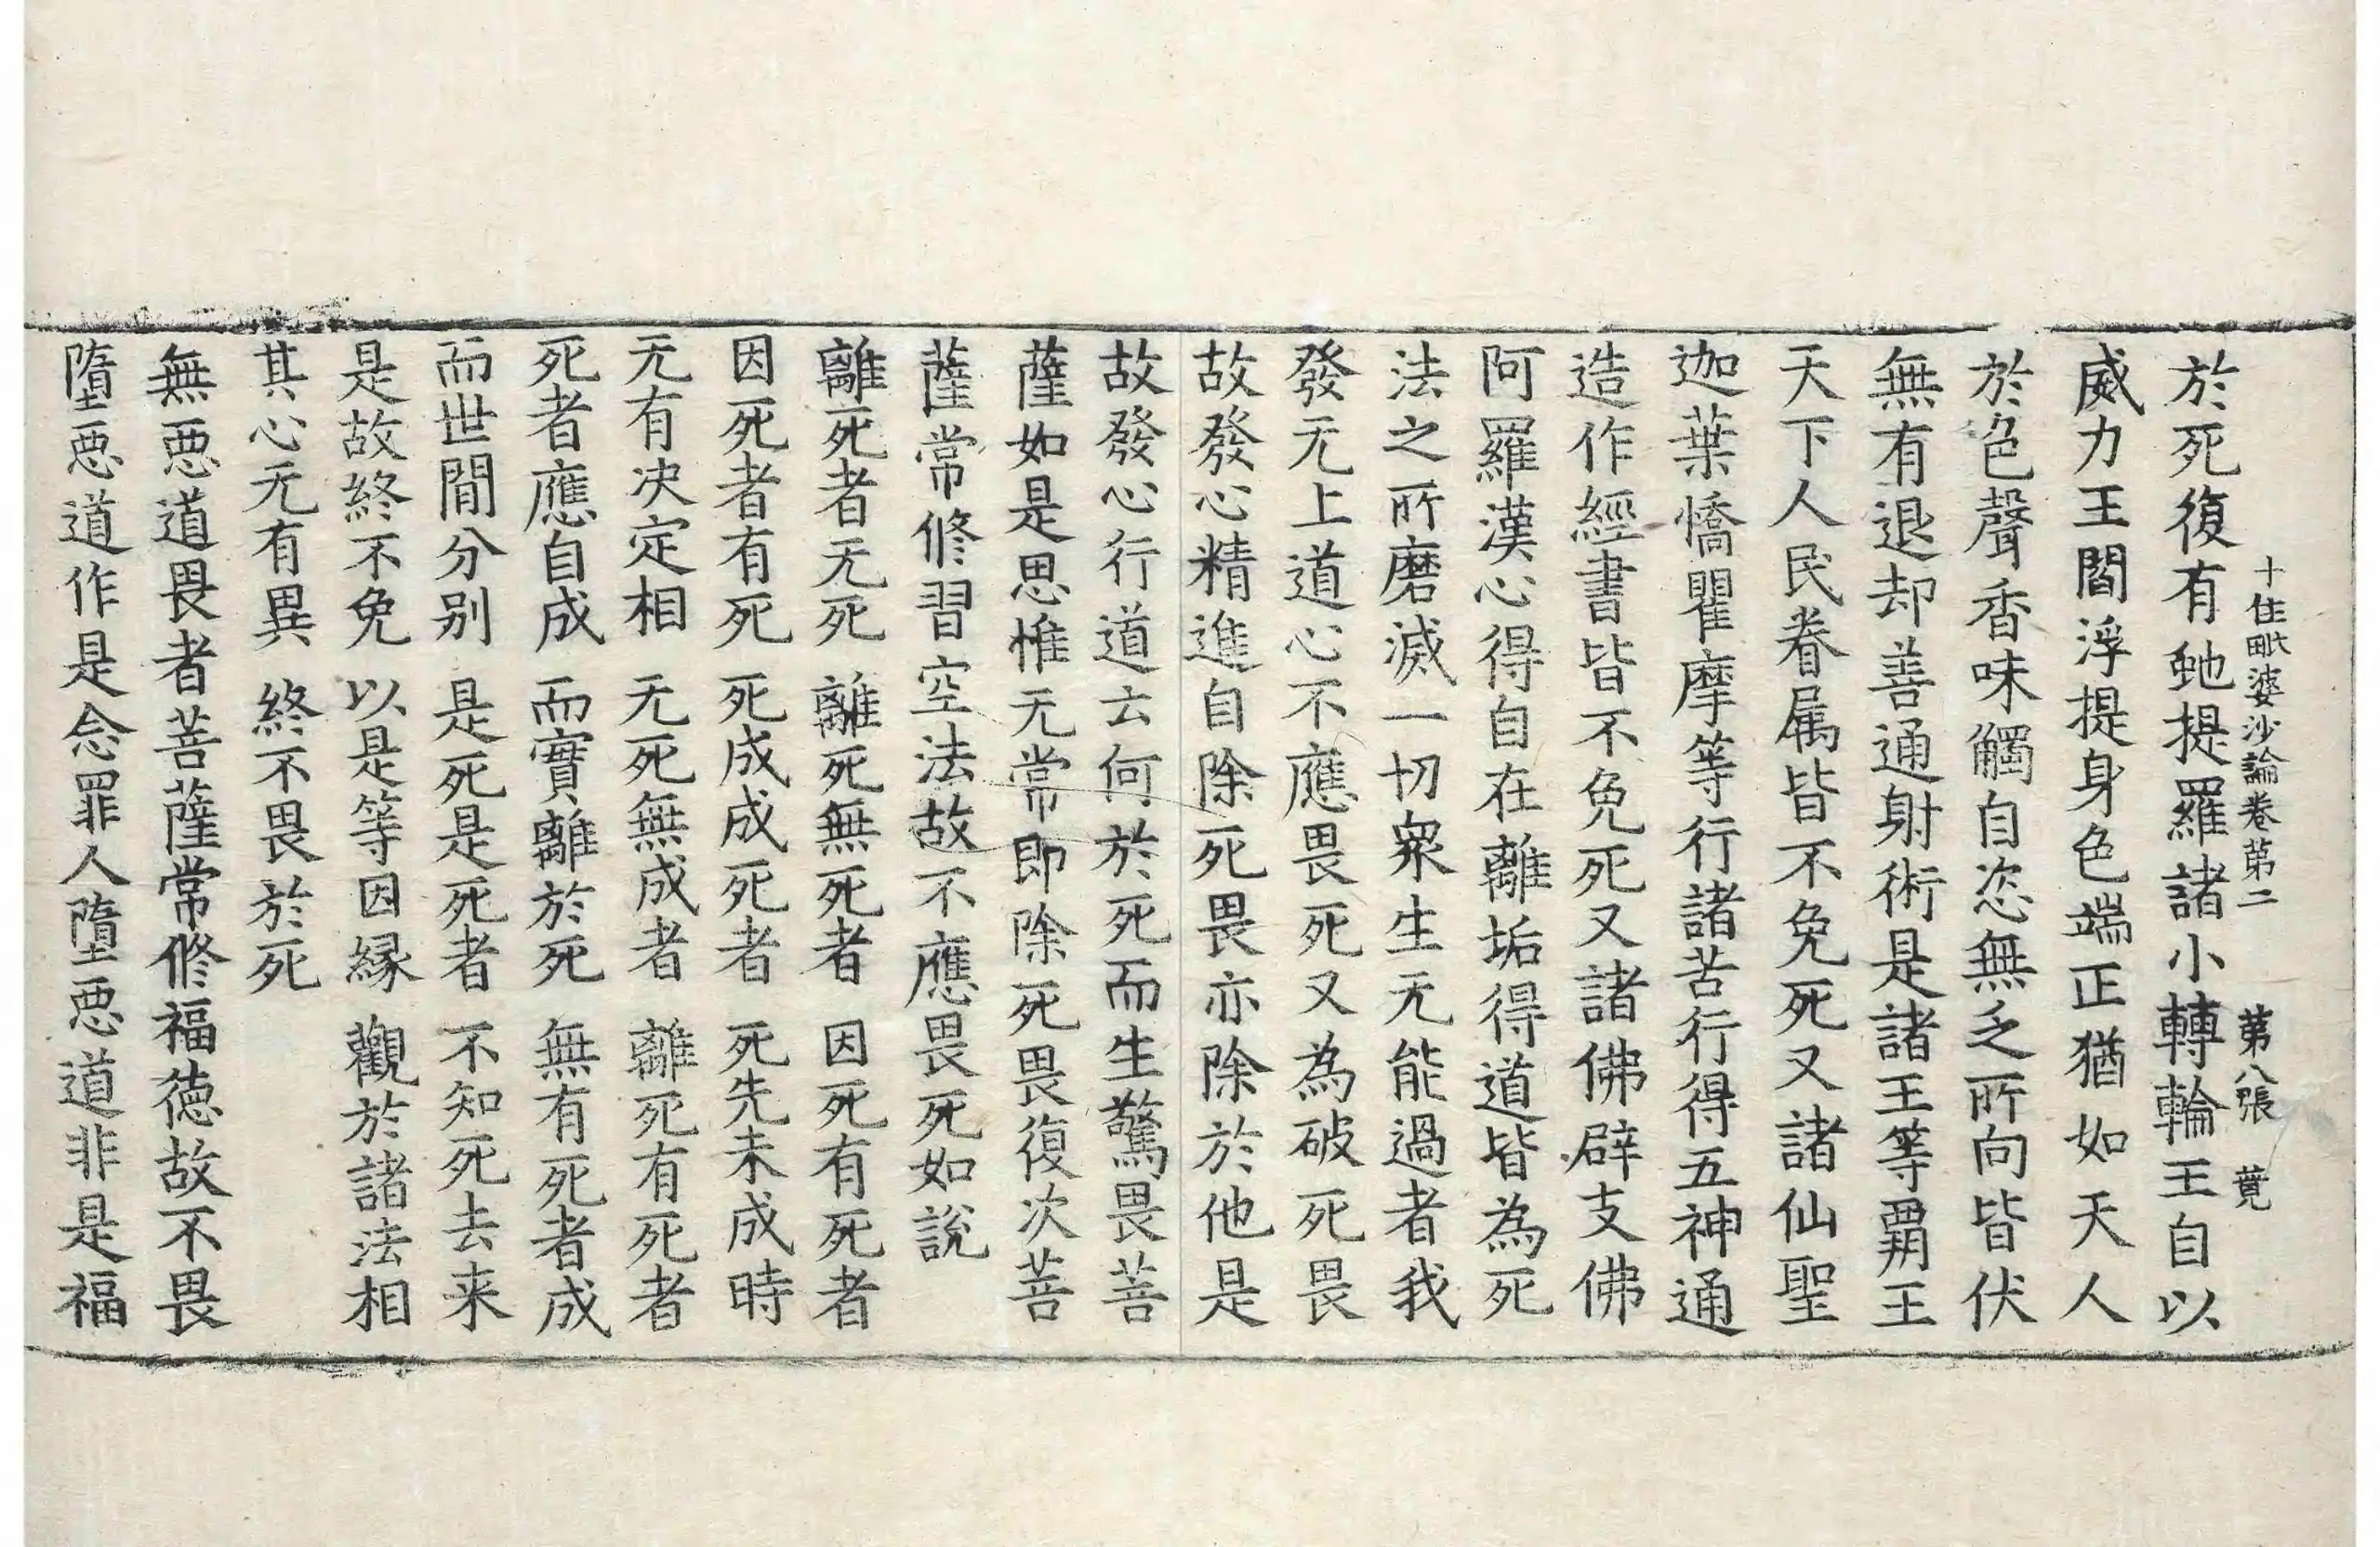 十住毗婆沙論卷第二 第八張 䒶
於死復有虵提羅諸小轉輪王自以
威力王閻浮提身色端正猶如天人
於色聲香味觸自恣無乏所向皆伏
無有退却善通射術是諸王等霸王
天下人民眷属皆不免死又諸仙聖
迦葉憍瞿摩等行諸苦行得五神通
造作經書皆不免死又諸佛辟支佛
阿羅漢心得自在離垢得道皆為死
法之所磨滅一切衆生无能過者我
發无上道心不應畏死又為破死畏
故發心精進自除死畏亦除於他是
故發心行道云何於死而生驚畏菩
薩如是思惟无常即除死畏復次菩
薩常修習空法故不應畏死如說
離死者无死 離死無死者 因死有死者
因死者有死 死成成死者 死先未成時
无有决定相 无死無成者 離死有死者
死者應自成 而實離於死 無有死者成
而世間分别 是死是死者 不知死去来
是故終不免 以是等因縁 觀於諸法相
其心无有異 終不畏於死
無惡道畏者菩薩常修福徳故不畏
墮惡道作是念罪人墮惡道非是福